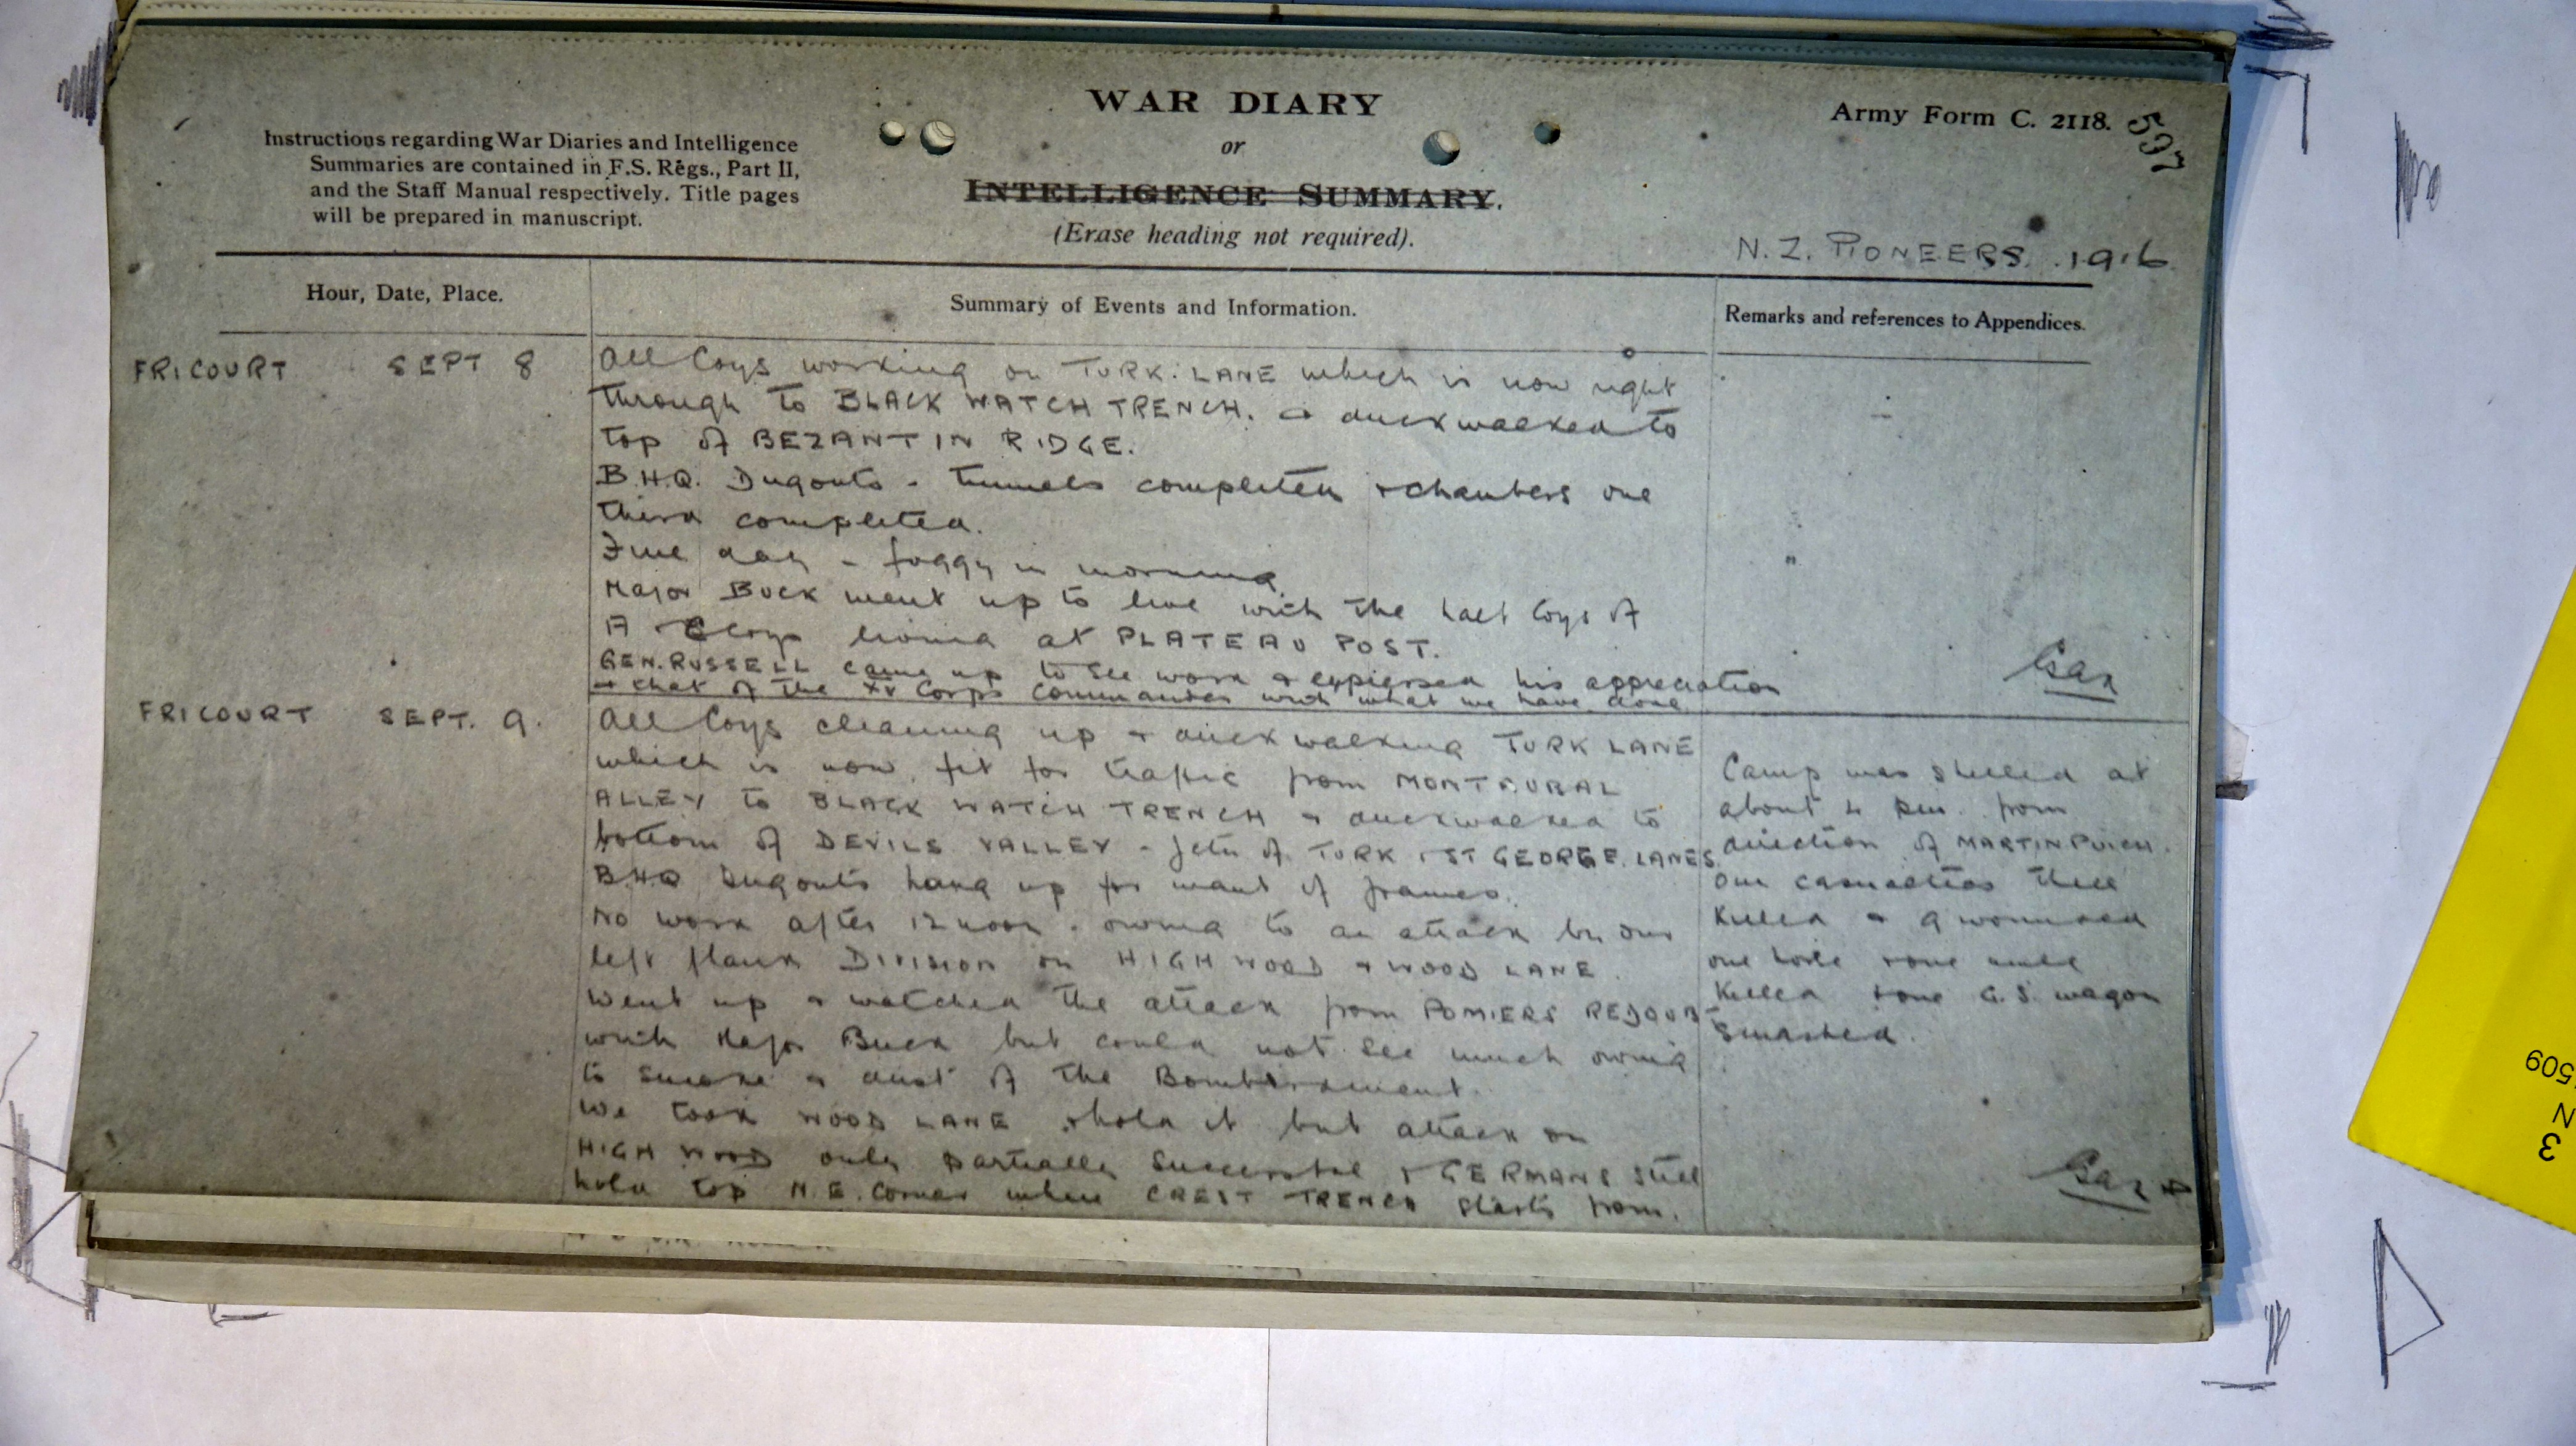 WAR DIARY
or
INTELLIGENCE SUMMARY.
(Erase heading not required).
Instructions regarding War Diaries and Intelligence
Summaries are contained in F.S. Regs., Part II,
and the Staff Manual respectively. Title pages
will be prepared in manuscript.
Army Form C. 2118.
597
N.Z. PIONEERS. 1916
Hour, Date, Place.
Summary of Events and Information.
Remarks and references to Appendices.
FRICOURT SEPT 8
All Coys working on TURK. LANE which is now right
through to BLACK WATCH TRENCH. & duckwalked to
top of BEZANTIN RIDGE.
B.H.Q. Dugouts - tunnels completed & chambers one
third completed.
Fine day - foggy in morning
Major Buck went up to live with the half Coys of
A & C Coys living at PLATEAU POST.
GEN. RUSSELL came up to see work & expressed his appreciation
& that of the XV Corps Commander with what we have done
FRICOURT SEPT. 9.
All Coys cleaning up & duckwalking TURK LANE
which is now fit for traffic from MONTAUBAL
ALLEY to BLACK WATCH TRENCH & duckwalked to
bottom of DEVILS VALLEY - Jctn of TURK & ST GEORGE LANES.
BHQ Dugouts hang up for want of frames.
No work after 12 noon - owing to an attack by our
left flank Division on HIGH WOOD & WOOD LANE.
Went up & watched the attack from POMIERS REDOUB-
with Major Buck but could not see much owing
to smoke & dust of the Bombardment.
We took WOOD LANE & hold it but attack on
HIGH WOOD only partially successful & GERMANS still
hold top N.E. corner where CREST TRENCH starts from.
Camp was shelled at
about 4 pm. from
direction of MARTINPUICH.
Our casualties three
killed & 9 wounded
one horse & one mule
killed & one G.S. wagon
smashed.
509
N
3